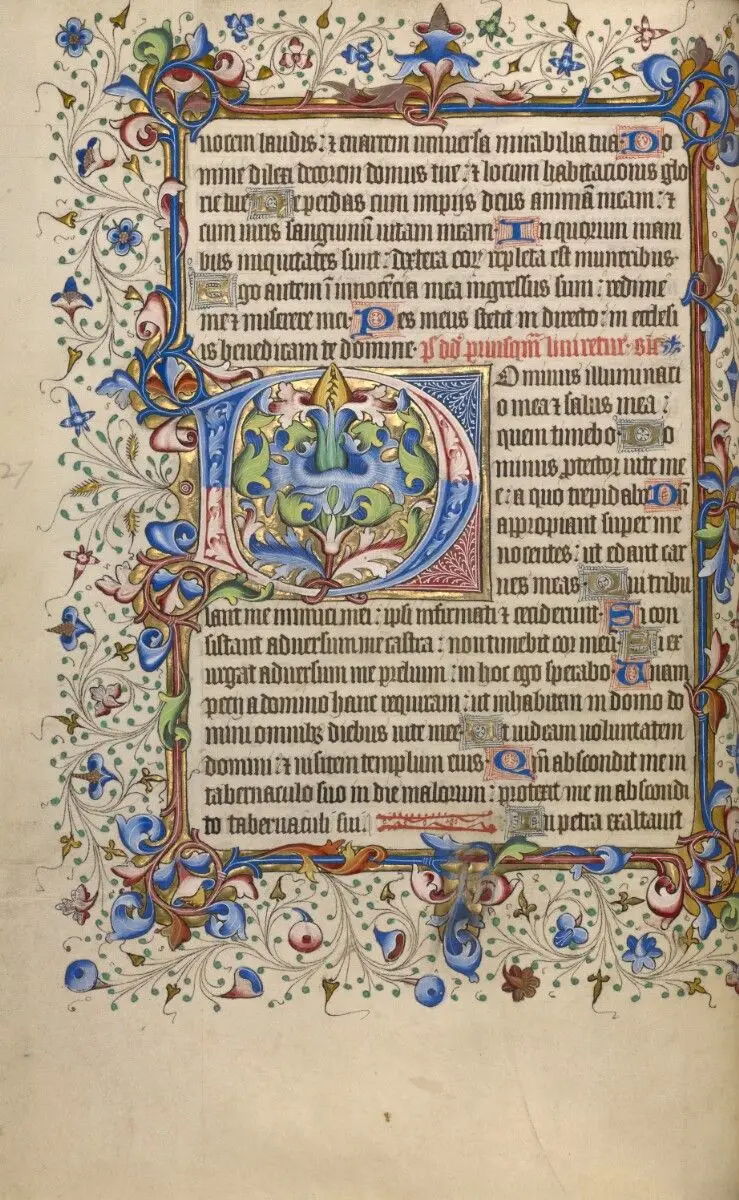 uocem laudis: ⁊ enarrem uniuersa mirabilia tua. Do
mine dilexi decorem domus tue: ⁊ locum habitacionis glo
rie tue. Ne perdas cum impijs deus animā meam: ⁊
cum uiris sanguinum uitam meam. In quorum mani
bus iniquitates sunt: dextera eoꝝ repleta est muneribus.
Ego autem ī innocēcia mea ingressus sum: redime
me ⁊ miserere mei. Pes meus stetit in directo: in ecclesi
is benedicam te domine. ps dd̄ priusqm̄ liniretur.
Dominus illuminati
o mea ⁊ salus mea:
quem timebo. Do
minus ꝓtector uite me
e: a quo trepidabo. Dū
appropiant super me
nocentes: ut edant car
nes meas. Qui tribu
lant me inimici mei: ipsi infirmati ⁊ ceciderunt. Si con
sistant aduersum me castra: non timebit coꝝ meū. Si ex
urgat aduersum me prelium: in hoc ego sperabo. Unam
pecij a domino hanc requiram: ut inhabitem in domo do
mini omnibꝫ diebus uite mee. Ut uideam uoluntatem
domini: ⁊ uisitem templum eius. Qm̄ abscondit me in
tabernaculo suo in die malorum: protexit me in abscondi
to tabernaculi sui. In petra exaltauit
27